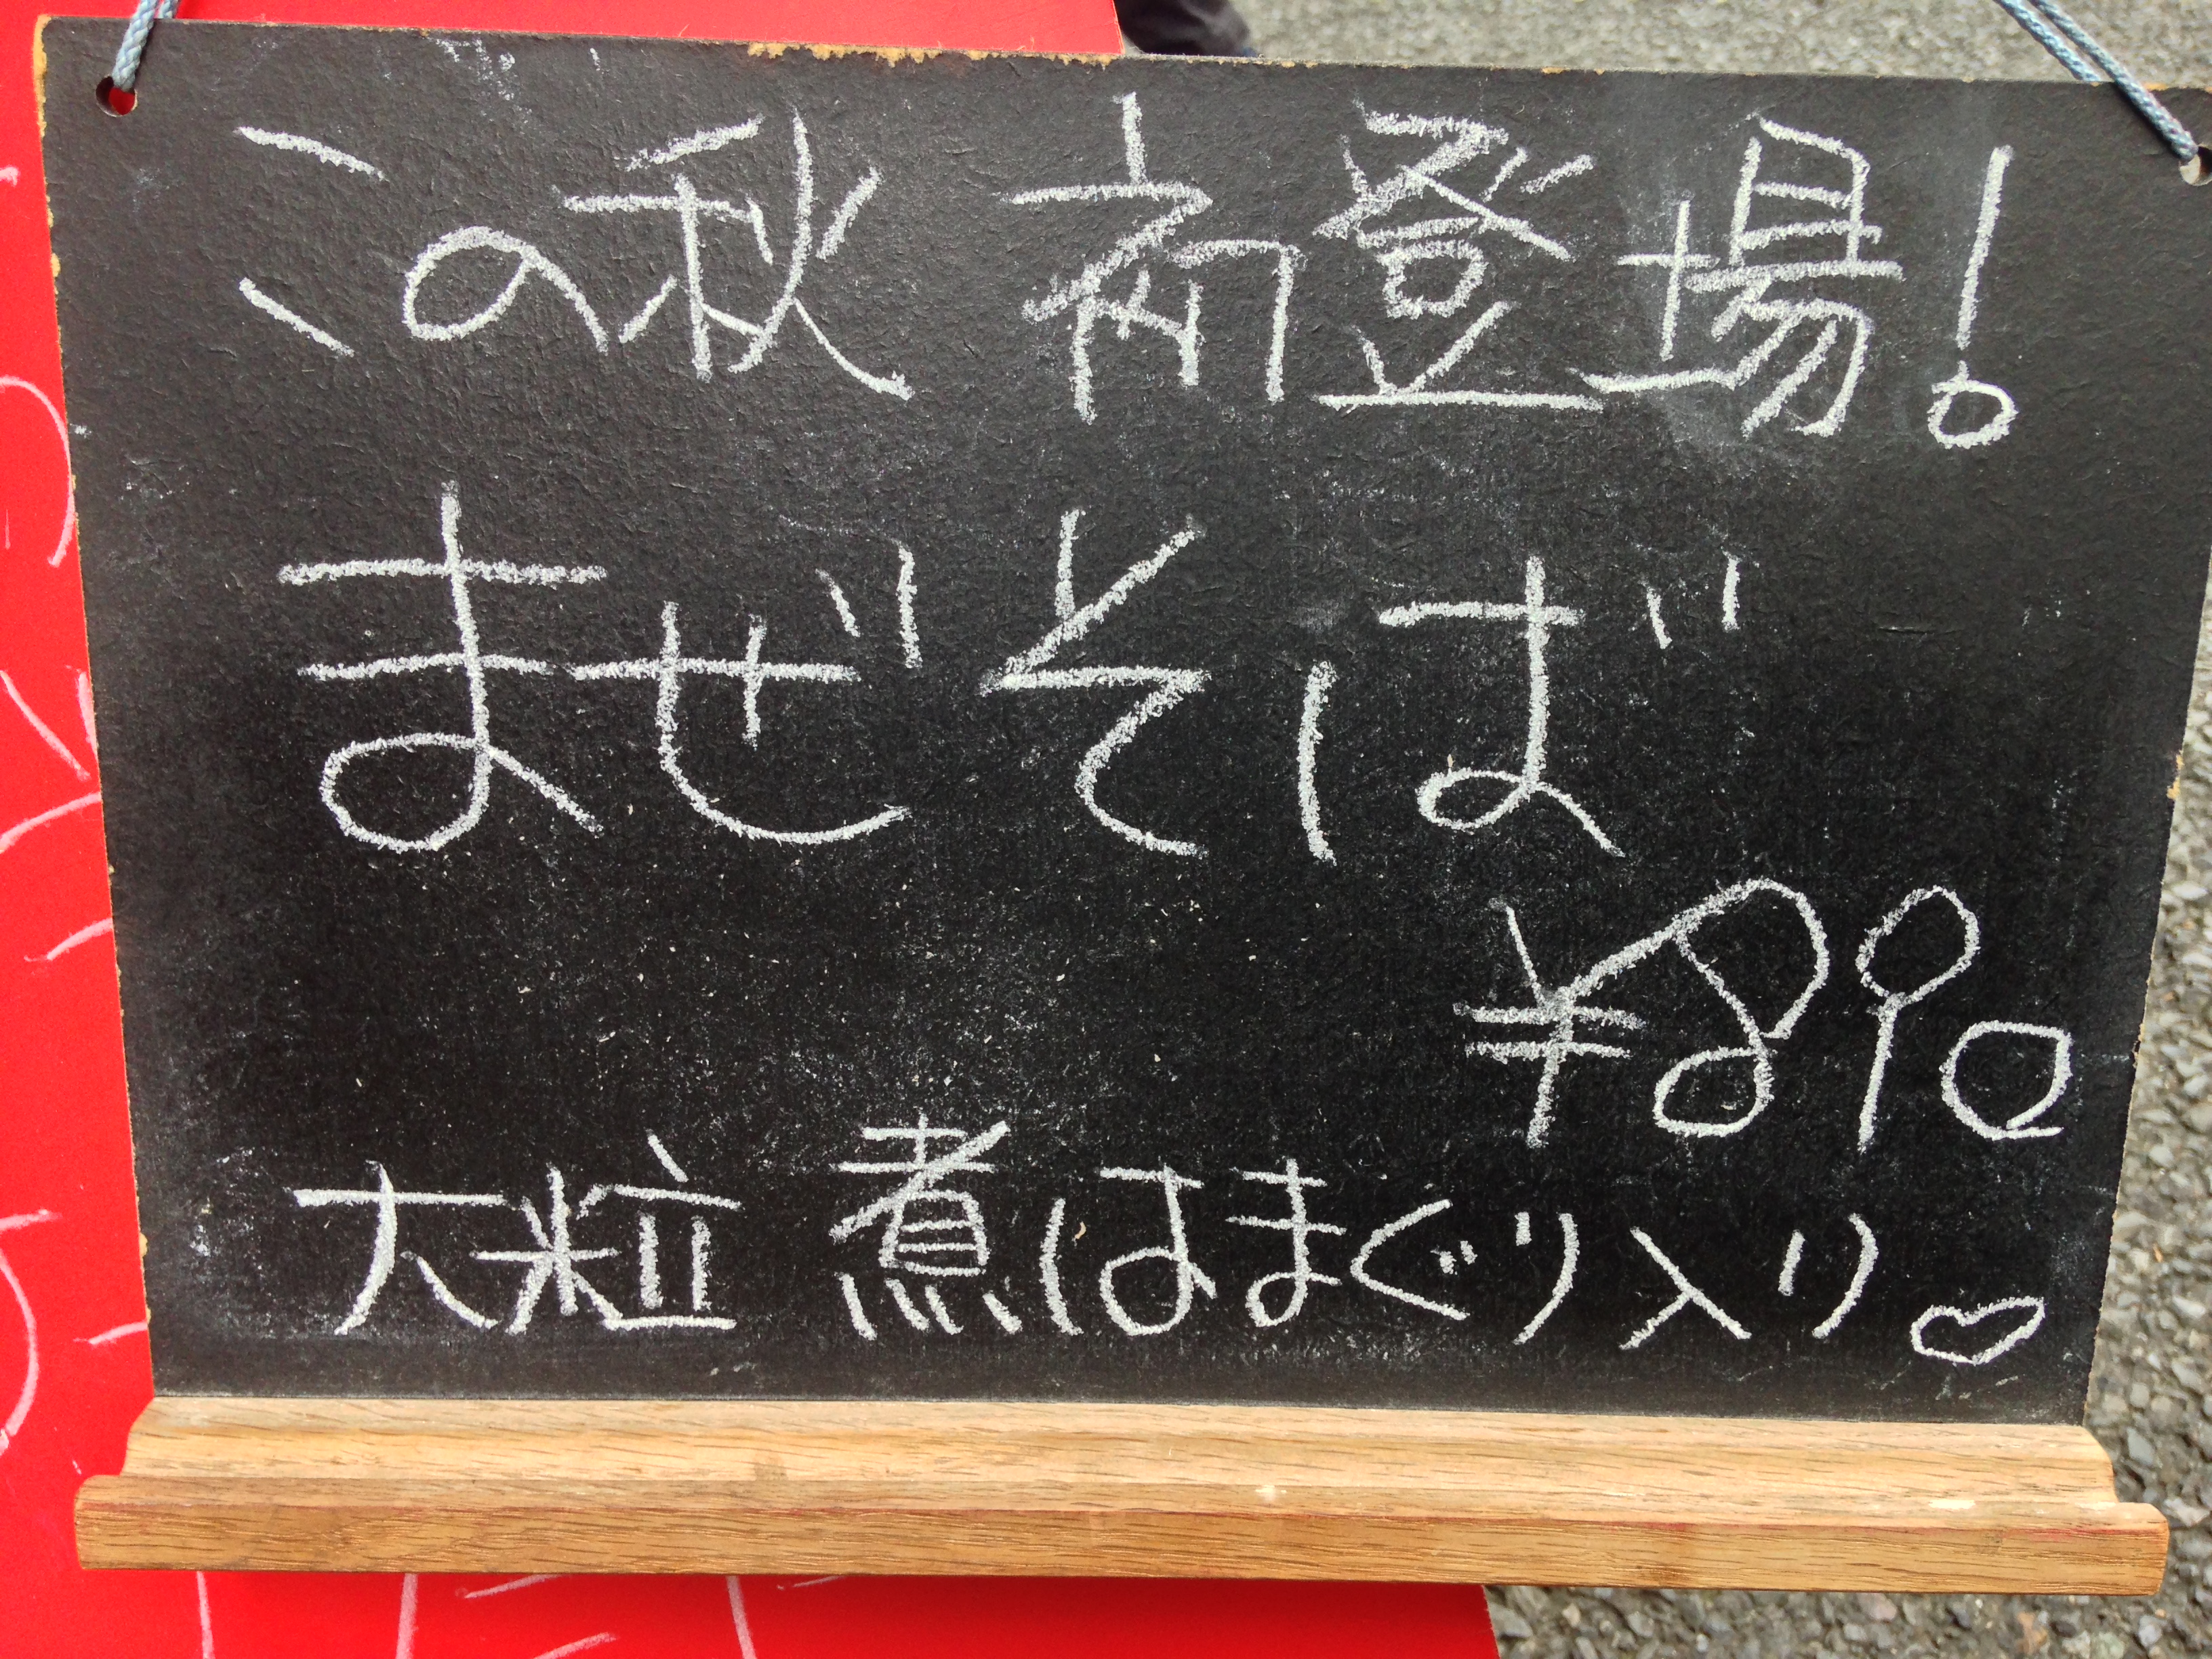 この秋 初登場!
まぜそば
¥890
大粒 煮はまぐり入り♡